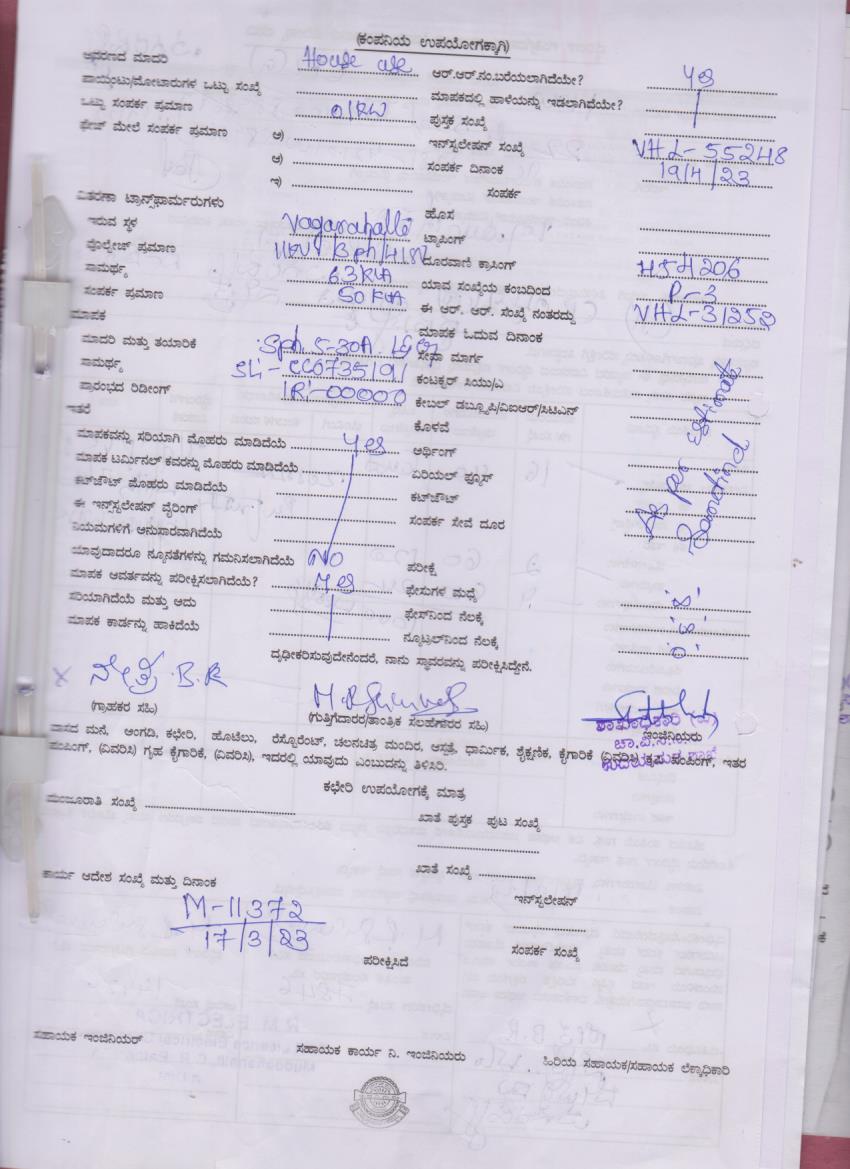 (ಕಂಪನಿಯ ಉಪಯೋಗಕ್ಕಾಗಿ)
ಆವರಣದ ಮಾದರಿ House use ಆರ್.ಆರ್.ನಂ.ಬರೆಯಲಾಗಿದೆಯೇ? yes
ಪಾಯಿಂಟು/ಮೋಟಾರುಗಳ ಒಟ್ಟು ಸಂಖ್ಯೆ ಮಾಪಕದಲ್ಲಿ ಹಾಳೆಯನ್ನು ಇಡಲಾಗಿದೆಯೇ?
ಒಟ್ಟು ಸಂಪರ್ಕ ಪ್ರಮಾಣ 01KW ಪುಸ್ತಕ ಸಂಖ್ಯೆ
ಫೇಜ್ ಮೇಲೆ ಸಂಪರ್ಕ ಪ್ರಮಾಣ ಅ) ಇನ್‌ಸ್ಟಲೇಷನ್ ಸಂಖ್ಯೆ VHL-55248
ಆ) ಸಂಪರ್ಕ ದಿನಾಂಕ 19/4/23
ಇ) ಸಂಪರ್ಕ
ವಿತರಣಾ ಟ್ರಾನ್ಸ್‌ಫಾರ್ಮರುಗಳು ಹೊಸ
ಇರುವ ಸ್ಥಳ Vagarahalli ಟ್ಯಾಪಿಂಗ್
ವೋಲ್ಟೇಜ್ ಪ್ರಮಾಣ 11KV/3ph/ ದೂರವಾಣಿ ಕ್ರಾಸಿಂಗ್ 454206
ಸಾಮರ್ಥ್ಯ 63KVA ಯಾವ ಸಂಖ್ಯೆಯ ಕಂಬದಿಂದ P-3
ಸಂಪರ್ಕ ಪ್ರಮಾಣ 50KVA ಈ ಆರ್. ಆರ್. ಸಂಖ್ಯೆ ನಂತರದ್ದು VHL-31252
ಮಾಪಕ ಮಾಪಕ ಓದುವ ದಿನಾಂಕ
ಮಾದರಿ ಮತ್ತು ತಯಾರಿಕೆ Sph. 5-30A. L&G ಸೇವಾ ಮಾರ್ಗ
ಸಾಮರ್ಥ್ಯ SL:-CC0735191 ಕಂಟಕ್ಟರ್ ಸಿಯು/ಎ
ಪ್ರಾರಂಭದ ರಿಡೀಂಗ್ IR:-00000 ಕೇಬಲ್ ಡಬ್ಲ್ಯೂಪಿ/ವಿಐಆರ್/ಸಿಟಿಎಸ್
ಇತರೆ ಕೊಳವೆ
ಮಾಪಕವನ್ನು ಸರಿಯಾಗಿ ಮೊಹರು ಮಾಡಿದೆಯೆ yes ಅರ್ಥಿಂಗ್
As per Estimate
ಮಾಪಕ ಟರ್ಮಿನಲ್ ಕವರನ್ನು ಮೊಹರು ಮಾಡಿದೆಯೆ ಏರಿಯಲ್ ಫ್ಯೂಸ್
ಕಟ್‌ಔಟ್ ಮೊಹರು ಮಾಡಿದೆಯೆ ಕಟ್‌ಔಟ್
ಈ ಇನ್‌ಸ್ಟಲೇಷನ್ ವೈರಿಂಗ್ ಸಂಪರ್ಕ ಸೇವೆ ದೂರ
ನಿಯಮಗಳಿಗೆ ಅನುಸಾರವಾಗಿದೆಯೆ
ಯಾವುದಾದರೂ ನ್ಯೂನತೆಗಳನ್ನು ಗಮನಿಸಲಾಗಿದೆಯೆ NO ಪರೀಕ್ಷೆ
ಮಾಪಕ ಆವರ್ತವನ್ನು ಪರೀಕ್ಷಿಸಲಾಗಿದೆಯೆ? yes ಫೇಸುಗಳ ಮಧ್ಯೆ
ಸರಿಯಾಗಿದೆಯೆ ಮತ್ತು ಅದು ಫೇಸ್‌ನಿಂದ ನೆಲಕ್ಕೆ
ಮಾಪಕ ಕಾರ್ಡನ್ನು ಹಾಕಿದೆಯೆ ನ್ಯೂಟ್ರಲ್‌ನಿಂದ ನೆಲಕ್ಕೆ '0'
ದೃಢೀಕರಿಸುವುದೇನೆಂದರೆ, ನಾನು ಸ್ಥಾವರವನ್ನು ಪರೀಕ್ಷಿಸಿದ್ದೇನೆ.
x ನೇತ್ರ B.R
(ಗ್ರಾಹಕರ ಸಹಿ) (ಗುತ್ತಿಗೆದಾರರ/ತಾಂತ್ರಿಕ ಸಲಹೆಗಾರರ ಸಹಿ) ಇಂಜಿನಿಯರು
ವಾಸದ ಮನೆ, ಅಂಗಡಿ, ಕಛೇರಿ, ಹೊಟೆಲು, ರೆಸ್ಟೊರೆಂಟ್, ಚಲನಚಿತ್ರ ಮಂದಿರ, ಆಸ್ಪತ್ರೆ, ಧಾರ್ಮಿಕ, ಶೈಕ್ಷಣಿಕ, ಕೈಗಾರಿಕೆ (ವಿವರಿಸಿ) ಕೃಷಿ ಪಂಪಿಂಗ್, ಇತರ
ಪಂಪಿಂಗ್, (ವಿವರಿಸಿ) ಗೃಹ ಕೈಗಾರಿಕೆ, (ವಿವರಿಸಿ), ಇದರಲ್ಲಿ ಯಾವುದು ಎಂಬುದನ್ನು ತಿಳಿಸಿರಿ.
ಕಛೇರಿ ಉಪಯೋಗಕ್ಕೆ ಮಾತ್ರ
ಮಂಜೂರಾತಿ ಸಂಖ್ಯೆ ಖಾತೆ ಪುಸ್ತಕ ಪುಟ ಸಂಖ್ಯೆ
ಖಾತೆ ಸಂಖ್ಯೆ
ಕಾರ್ಯ ಆದೇಶ ಸಂಖ್ಯೆ ಮತ್ತು ದಿನಾಂಕ
ಇನ್‌ಸ್ಟಲೇಷನ್
M-11372
17/3/23
ಸಂಪರ್ಕ ಸಂಖ್ಯೆ
ಪರೀಕ್ಷಿಸಿದೆ
ಸಹಾಯಕ ಇಂಜಿನಿಯರ್ ಸಹಾಯಕ ಕಾರ್ಯ ನಿ. ಇಂಜಿನಿಯರು ಹಿರಿಯ ಸಹಾಯಕ/ಸಹಾಯಕ ಲೆಕ್ಕಾಧಿಕಾರಿ